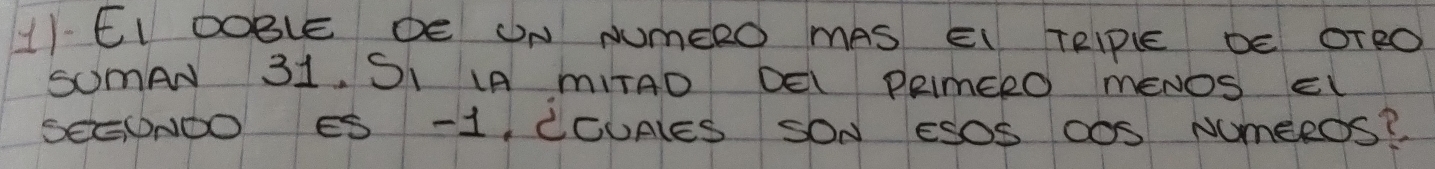 1)- El DOBLE DE UN NUMERO MAS El TRIPLE DE OTRO
SUMAN 31. SI LA MITAD DEL PRIMERO MENOS El
SEGUNDO ES -1. ¿CUALES SON ESOS DOS NUMEROS?